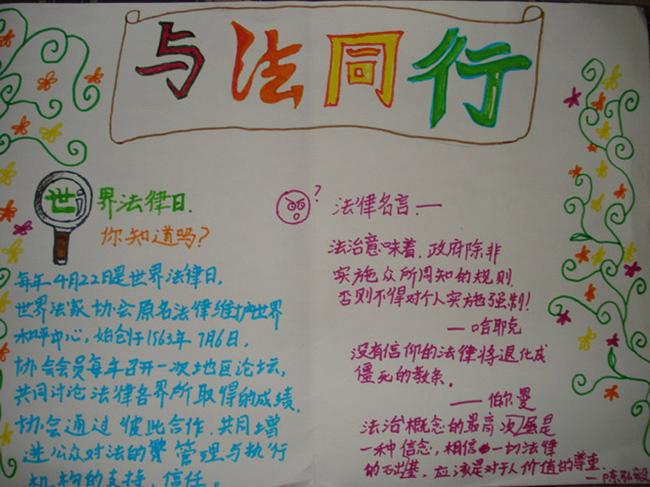 与法同行
世界法律日.
你知道吗?
每年4月22日是世界法律日.
世界法家协会原名法律维护世界
和平中心，始创于1563年7月6日.
协会会员每年召开一次地区论坛，
共同讨论法律各界所取得的成绩.
协会通过彼此合作.共同增
进公众对法的 管理与执行
机构的支持、信任.
?
法律名言.—
法治意味着.政府除非
实施众所周知的规则.
否则不得对个人实施强制!
—哈耶克
没有信仰的法律将退化成
僵死的教条。
——伯尔曼
法治概念的最高 是
一种信念，相信 一切法律
的 基.应该是对于人价值的尊重
—陈弘毅